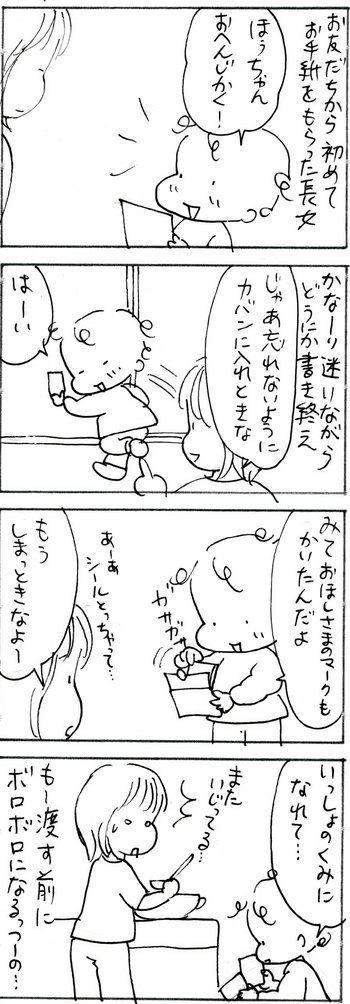 お友だちから初めて
お手紙をもらった長女
ほぅちゃん
おへんじかく!
かなーり迷いながら
どうにか書き終え
じゃあ忘れないように
カバンに入れときな
はーい
みておほしさまのマークも
かいたんだよ
ガサガサ
あーあ
シールとっちゃって…
もう
しまっときなよー
いっしょのくみに
なれて…
また
いじってる…
も〜渡す前に
ボロボロになるっつーの…